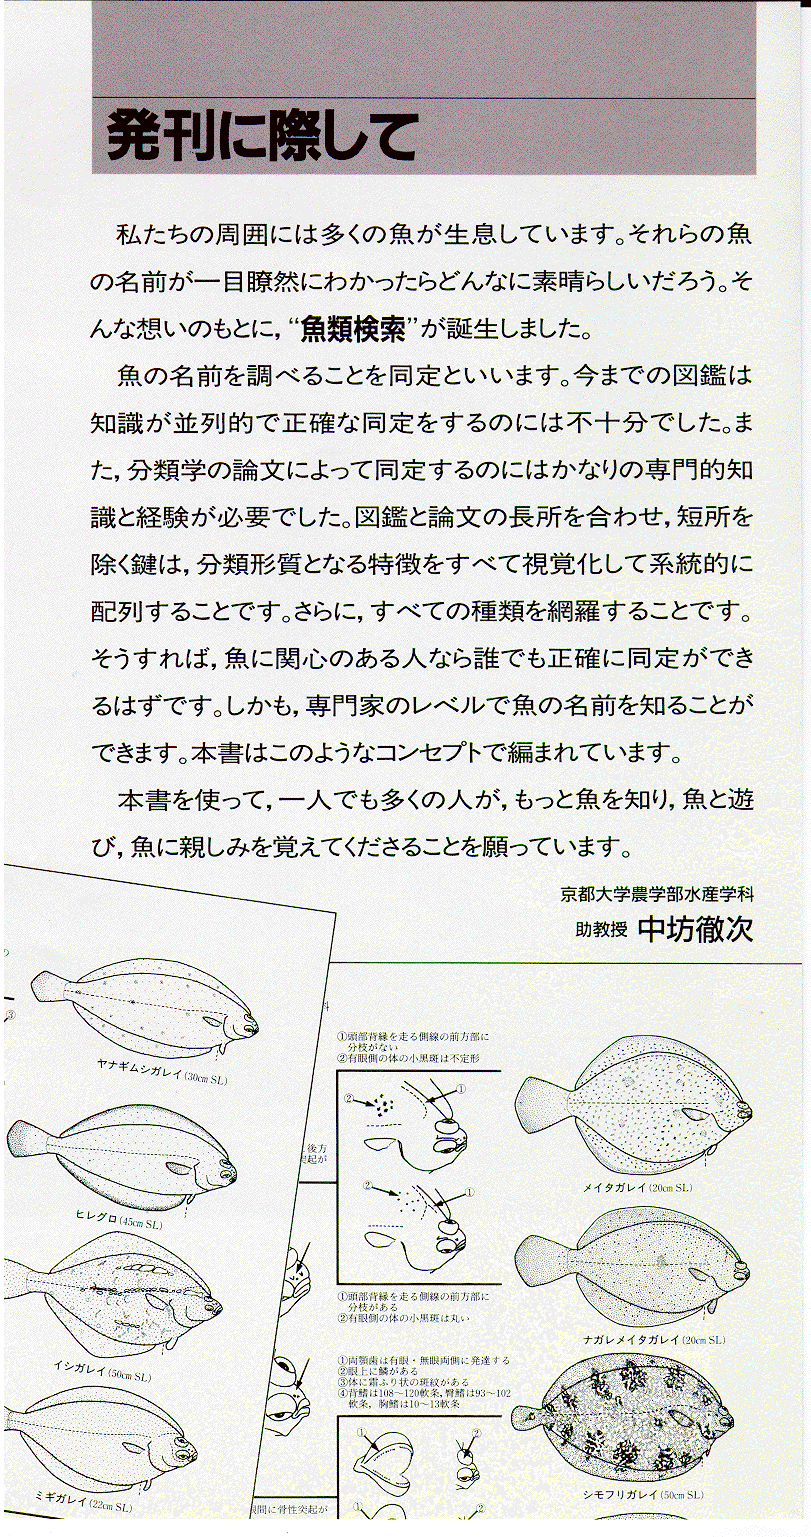 発刊に際して
私たちの周囲には多くの魚が生息しています。それらの魚
の名前が一目瞭然にわかったらどんなに素晴らしいだろう。そ
んな想いのもとに，“魚類検索”が誕生しました。
魚の名前を調べることを同定といいます。今までの図鑑は
知識が並列的で正確な同定をするのには不十分でした。ま
た，分類学の論文によって同定するのにはかなりの専門的知
識と経験が必要でした。図鑑と論文の長所を合わせ，短所を
除く鍵は，分類形質となる特徴をすべて視覚化して系統的に
配列することです。さらに，すべての種類を網羅することです。
そうすれば，魚に関心のある人なら誰でも正確に同定ができ
るはずです。しかも，専門家のレベルで魚の名前を知ることが
できます。本書はこのようなコンセプトで編まれています。
本書を使って，一人でも多くの人が，もっと魚を知り，魚と遊
び，魚に親しみを覚えてくださることを願っています。
京都大学農学部水産学科
助教授 中坊徹次
③
ヤナギムシガレイ(30cm SL)
ヒレグロ(45cm SL)
イシガレイ(50cm SL)
ミギガレイ(22cm SL)
4
後方
突起が
眼間に骨性突起が
①頭部背縁を走る側線の前方部に
分枝がない
②有眼側の体の小黒斑は不定形
②
①
②
①
①頭部背縁を走る側線の前方部に
分枝がある
②有眼側の体の小黒斑は丸い
①両顎歯は有眼・無眼両側に発達する
②眼上に鱗がある
③体に霜ふり状の斑紋がある
④背鰭は108〜120軟条，臀鰭は93〜102
軟条，胸鰭は10〜13軟条
①
②
①
②
メイタガレイ(20cm SL)
ナガレメイタガレイ(20cm SL)
シモフリガレイ(50cm SL)